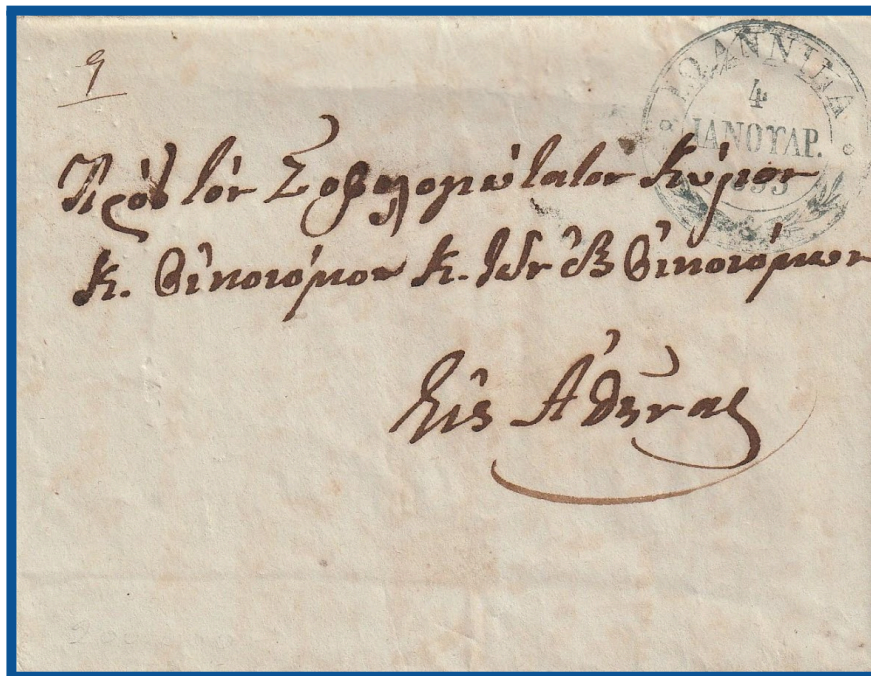 9
ΙΩΑΝΝΙΝΑ
4
ΙΑΝΟΥΑΡ.
Πρὸς τὸν Σοφολογιώτατον Κύριον
Κ. Οἰκονόμον Κ. τὸν ἐξ Οἰκονόμων
Εἰς Ἀθήνας